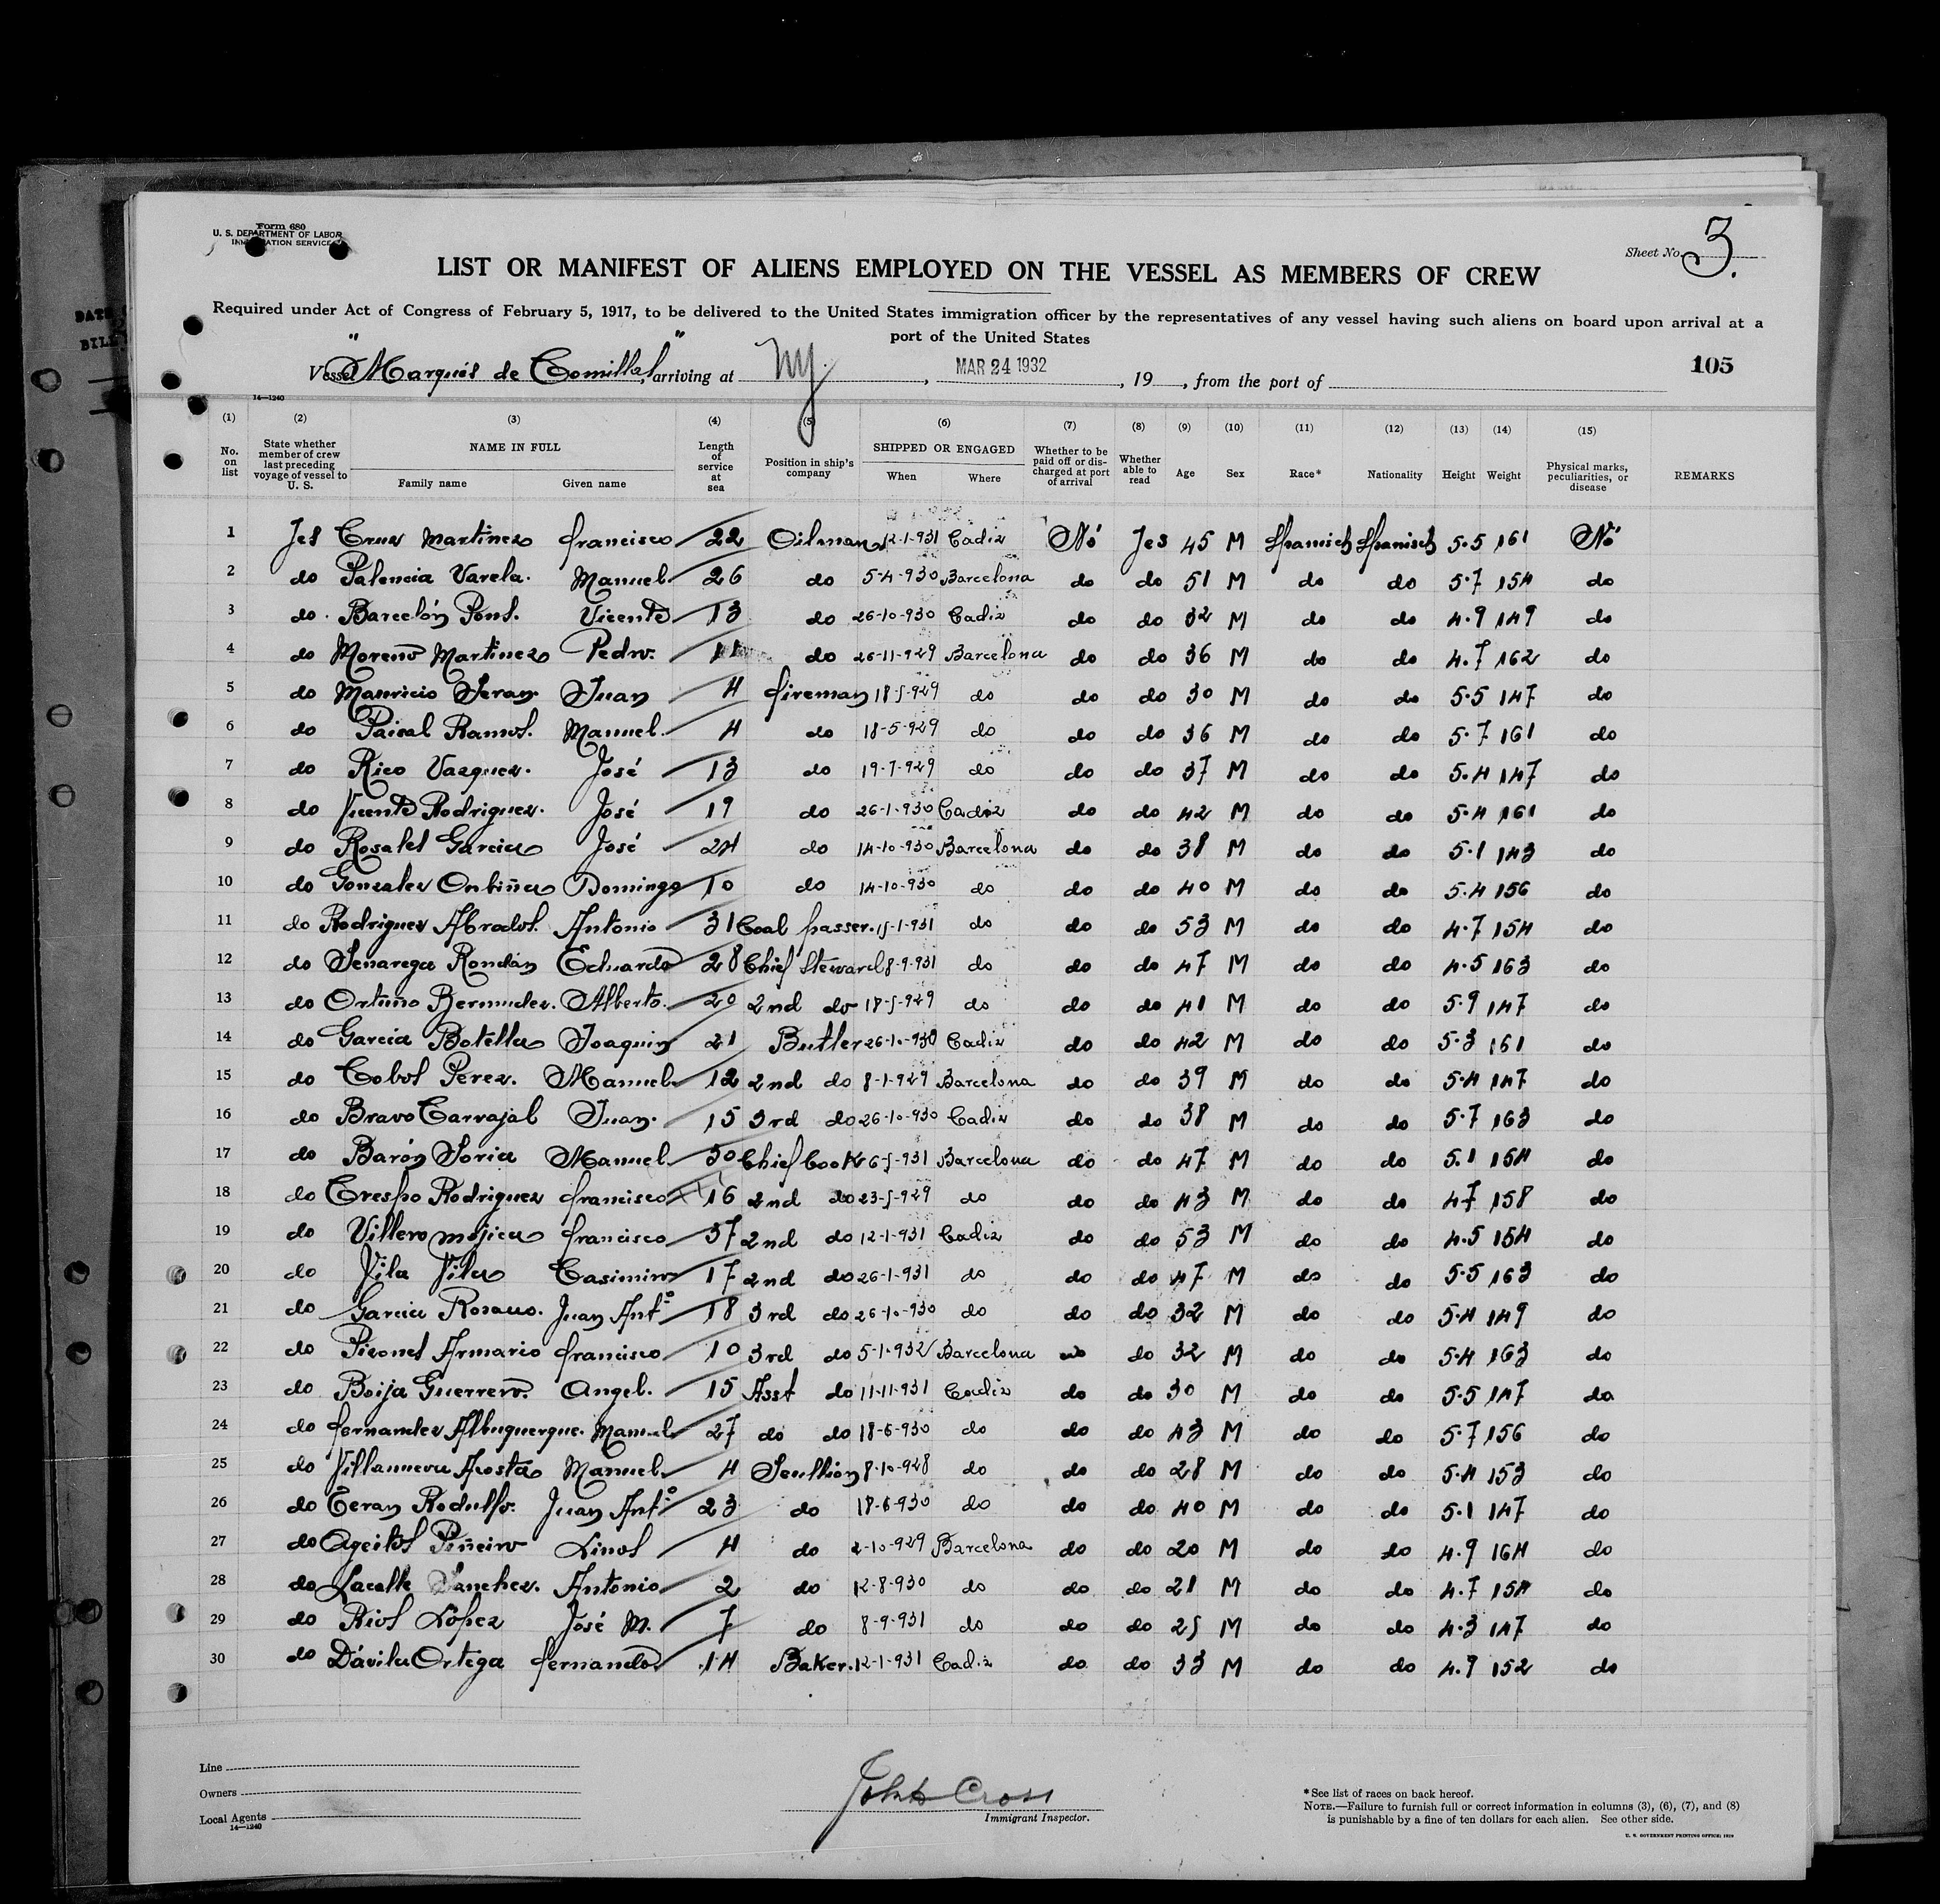 Form 680
U. S. DEPARTMENT OF LABOR
IMMIGRATION SERVICE
Sheet No. 3.
LIST OR MANIFEST OF ALIENS EMPLOYED ON THE VESSEL AS MEMBERS OF CREW
Required under Act of Congress of February 5, 1917, to be delivered to the United States immigration officer by the representatives of any vessel having such aliens on board upon arrival at a
port of the United States
Vessel "Marqués de Comillas", arriving at Ny, MAR 24 1932, 19, from the port of
105
14—1240
(1) (2) (3) (4) (5) (6) (7) (8) (9) (10) (11) (12) (13) (14) (15)
No. on list State whether member of crew last preceding voyage of vessel to U. S. NAME IN FULL Family name Given name Length of service at sea Position in ship's company SHIPPED OR ENGAGED When Where Whether to be paid off or discharged at port of arrival Whether able to read Age Sex Race* Nationality Height Weight Physical marks, peculiarities, or disease REMARKS
1 Jes Cruz Martinez francisco 22 Oilman 12-1-931 Cadiz Nó Jes 45 M Spanisch Spanisch 5.5 161 Nó
2 do Palencia Varela. Manuel 26 do 5-4-930 Barcelona do do 51 M do do 5.7 154 do
3 do Barcelón Pons. Vicente 13 do 26-10-930 Cadiz do do 32 M do do 4.9 149 do
4 do Moreno Martinez Pedro. 11 do 26-11-929 Barcelona do do 36 M do do 4.7 162 do
5 do Mauricio Seran Juan 4 fireman 18-5-929 do do do 30 M do do 5.5 147 do
6 do Paisal Ramos. Manuel. 4 do 18-5-929 do do do 36 M do do 5.7 161 do
7 do Rico Vazquez. José 13 do 19-7-929 do do do 37 M do do 5.4 147 do
8 do Vicente Rodriguez. José 19 do 26-1-930 Cadiz do do 42 M do do 5.4 161 do
9 do Rosalel Garcia José 24 do 14-10-930 Barcelona do do 38 M do do 5.1 143 do
10 do Gonzalez Onbiña Domingo 10 do 14-10-930 do do do 40 M do do 5.4 156 do
11 do Rodriguez Abrodos. Antonio 31 Coal passer. 15-1-931 do do do 53 M do do 4.7 154 do
12 do Senarega Rondán Eduardo 28 Chief Steward 8-9-931 do do do 47 M do do 4.5 163 do
13 do Ortuño Bermudez. Alberto. 20 2nd do 18-5-929 do do do 41 M do do 5.9 147 do
14 do Garcia Botella Joaquin 21 Butler 26-10-930 Cadiz do do 42 M do do 5.3 161 do
15 do Cobos Perez. Manuel 12 2nd do 8-1-929 Barcelona do do 39 M do do 5.4 147 do
16 do Bravo Carvajal Juan. 15 3rd do 26-10-930 Cadiz do do 38 M do do 5.7 163 do
17 do Barón Soria Manuel 30 Chief Cook 6-5-931 Barcelona do do 47 M do do 5.1 154 do
18 do Crespo Rodriguez francisco 16 2nd do 23-5-929 do do do 43 M do do 4.7 158 do
19 do Villero mojica francisco 37 2nd do 12-1-931 Cadiz do do 53 M do do 4.5 154 do
20 do Vila Vila Casimiro 17 2nd do 26-1-931 do do do 47 M do do 5.5 163 do
21 do Garcia Rosado. Juan Antº 18 3rd do 26-10-930 do do do 32 M do do 5.4 149 do
22 do Pizones Armario francisco 10 3rd do 5-1-932 Barcelona do do 32 M do do 5.4 163 do
23 do Boija Guerrero. Angel. 15 Asst do 11-11-931 Cadiz do do 30 M do do 5.5 147 do
24 do fernandez Albuquerque. Manuel 27 do do 18-6-930 do do do 43 M do do 5.7 156 do
25 do Villanueva Acosta Manuel 4 Scullion 8-10-928 do do do 28 M do do 5.4 153 do
26 do Teran Rodulfo. Juan Antº 23 do 18-6-930 do do do 40 M do do 5.1 147 do
27 do Ageitos Piñeiro Linos 4 do 2-10-929 Barcelona do do 20 M do do 4.9 164 do
28 do Lacalle Sanchez. Antonio 2 do 12-8-930 do do do 21 M do do 4.7 154 do
29 do Rios López José M. 7 do 8-9-931 do do do 25 M do do 4.3 147 do
30 do Dávila Ortega fernando 14 Baker. 12-1-931 Cadiz do do 33 M do do 4.9 152 do
Line
Owners
Local Agents
14—1240
John Cross
Immigrant Inspector.
*See list of races on back hereof.
NOTE.—Failure to furnish full or correct information in columns (3), (6), (7), and (8)
is punishable by a fine of ten dollars for each alien. See other side.